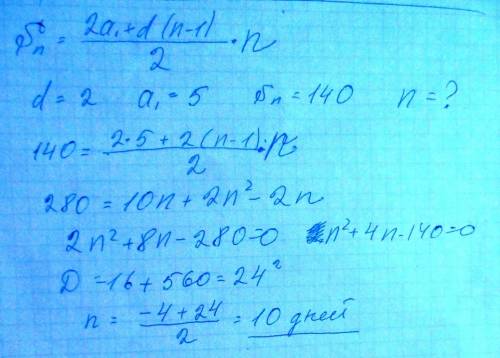 Sₙ = (2a₁ + d(n-1))/2 · n
d = 2 a₁ = 5 Sₙ = 140 n = ?
140 = (2·5 + 2(n-1))/2 · n
280 = 10n + 2n² - 2n
2n² + 8n - 280 = 0 n² + 4n - 140 = 0
D = 16 + 560 = 24²
n = (-4 + 24)/2 = 10 дней